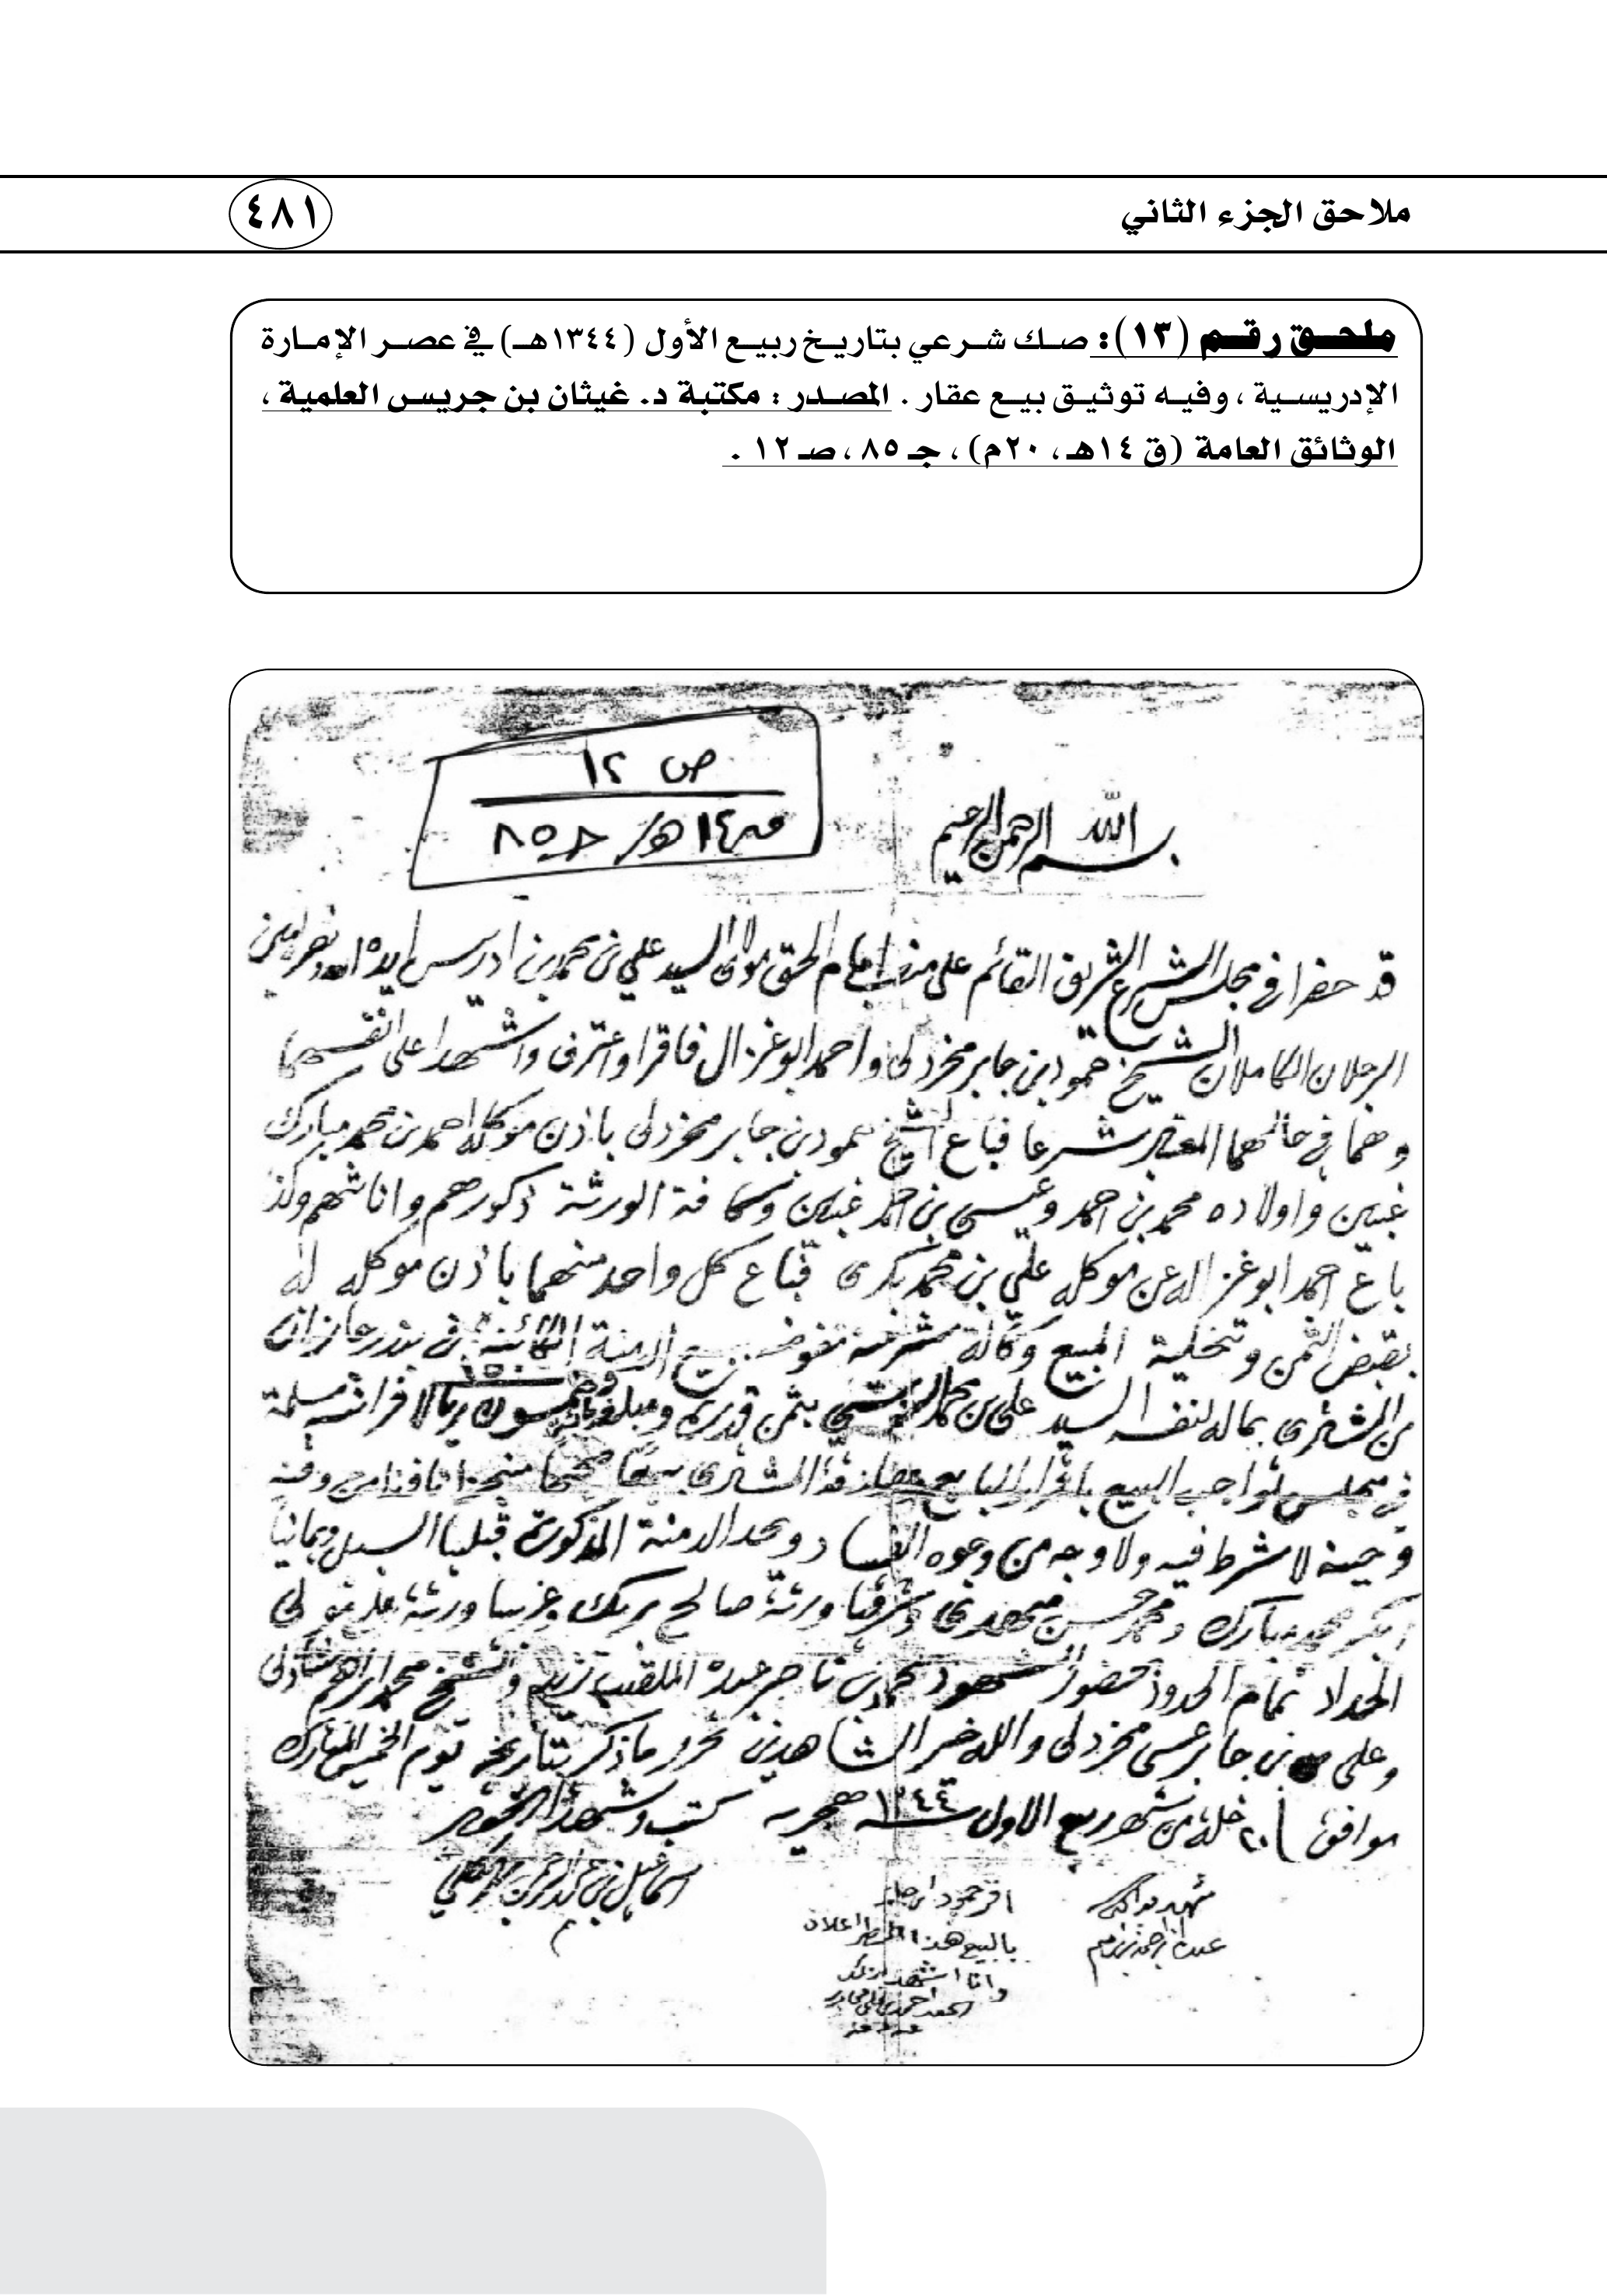 ملاحق الجزء الثاني
٤٨١
ملحق رقم (١٣): صك شرعي بتاريخ ربيع الأول (١٣٤٤هـ) في عصر الإمارة
الإدريسية ، وفيه توثيق بيع عقار . المصدر : مكتبة د. غيثان بن جريس العلمية ،
الوثائق العامة (ق ١٤هـ، ٢٠م) ، جـ ٨٥ ، صـ ١٢ .
ص ١٢
ق ١٤هـ/ جـ ٨٥
بسم الله الرحمن الرحيم
قد حضرا في مجلس الشرع الشريف القائم على منصب إمام الحق مولانا السيد علي بن محمد بن ادريس ايده الله ونصره امين
الرجلان الكاملان الشيخ حمود بن جابر مخردلي واحمد ابو غزال فاقرا واعترفا واشهدا على انفسهما
وهما في حالهما المعتبر شرعا فباع الشيخ حمود بن جابر مخردلي باذن موكله احمد بن حمد مبارك
غبين واولاده محمد بن احمد وعيسى بن احمد غبين وكافة الورثة ذكورهم واناثهم وكذ
باع احمد ابو غزاله عن موكله علي بن محمد بكرى فباع كل واحد منهما باذن موكله له
بقبض الثمن وتخلية المبيع وكالة شرعية مفوضة جميع الدمنة الكائنة في بندر جازان
من المشترى بماله لنفسه السيد علي بن محمد السنوسي بثمن قدره ومبلغه وخمسون ريالا فرانسه مسلمة
في مجلس تواجب البيع باقرار البايع المشترى بيعا صحيحا منجزا نافذا من وقته
وحينه لا شرط فيه ولا وجه من وجوه الفساد ويحد الدمنة المذكورة قبليا السبيل ويمانيا
محمد مبارك ومحمد حسن مهدى وشرقيا ورثة صالح بريك غربيا ورثة
الحداد تمام الحدود بحضور الشهود محمد بن ناصر عبده الملقب زيد والشيخ محمد ابراهيم شاذلى
وعلى بن جابر عيسى مخردلى والله خير الشاهدين تحرر ما ذكر بتاريخه يوم الخميس المبارك
موافق ٢٠ خلت من شهر ربيع الاول سنة ١٣٤٤ هجريه كتب وشهد
اسماعيل بن عبد الرحمن
شهد بذلك
اقر حمود بن جابر
بالبيع هذا المحرر اعلاه
وانا اشهد بذلك